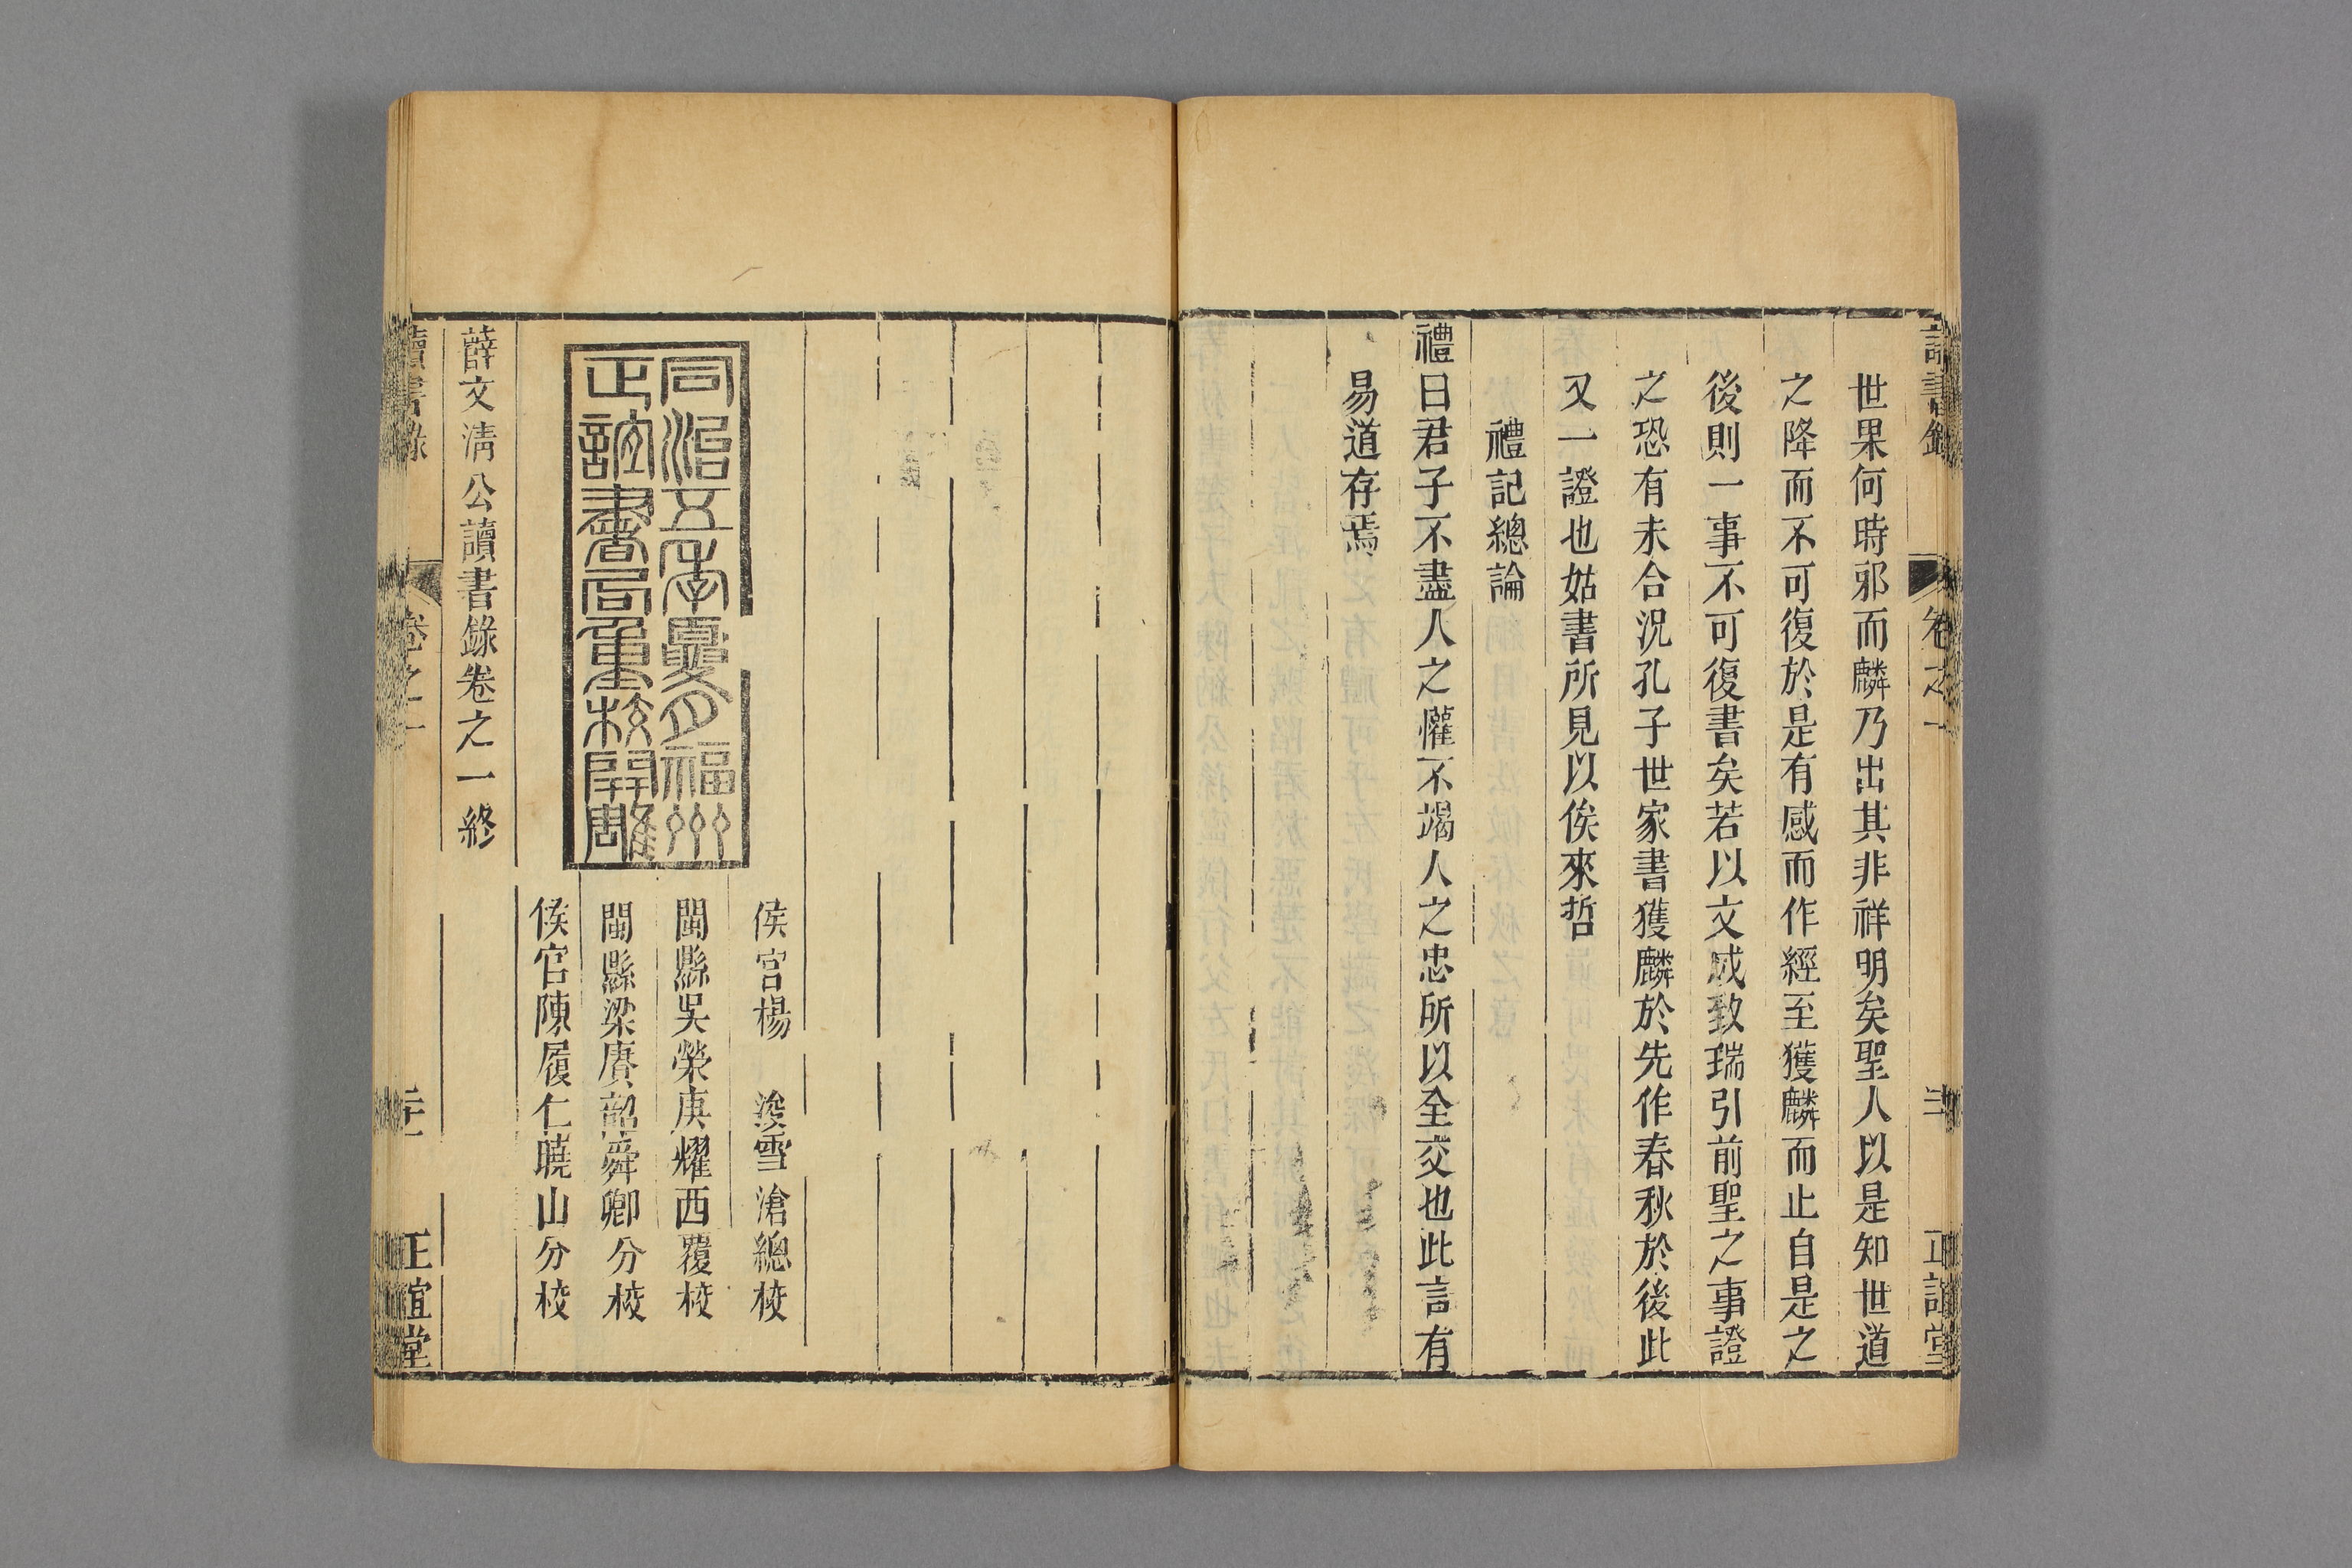 讀書錄 卷之一 正誼堂
世果何時邪而麟乃出其非祥明矣聖人以是知世道
之降而不可復於是有感而作經至獲麟而止自是之
後則一事不可復書矣若以文成致瑞引前聖之事證
之恐有未合況孔子世家書獲麟於先作春秋於後此
又一證也姑書所見以俟來哲
禮記總論
禮曰君子不盡人之懽不竭人之忠所以全交也此言有
易道存焉
同治五年夏月福州
正誼書局重校開雕
侯官楊 浚雪滄總校
閩縣吳榮庚耀西覆校
閩縣梁賡韶舜卿分校
侯官陳履仁曉山分校
薛文清公讀書錄卷之一終
讀書錄 卷之一 正誼堂